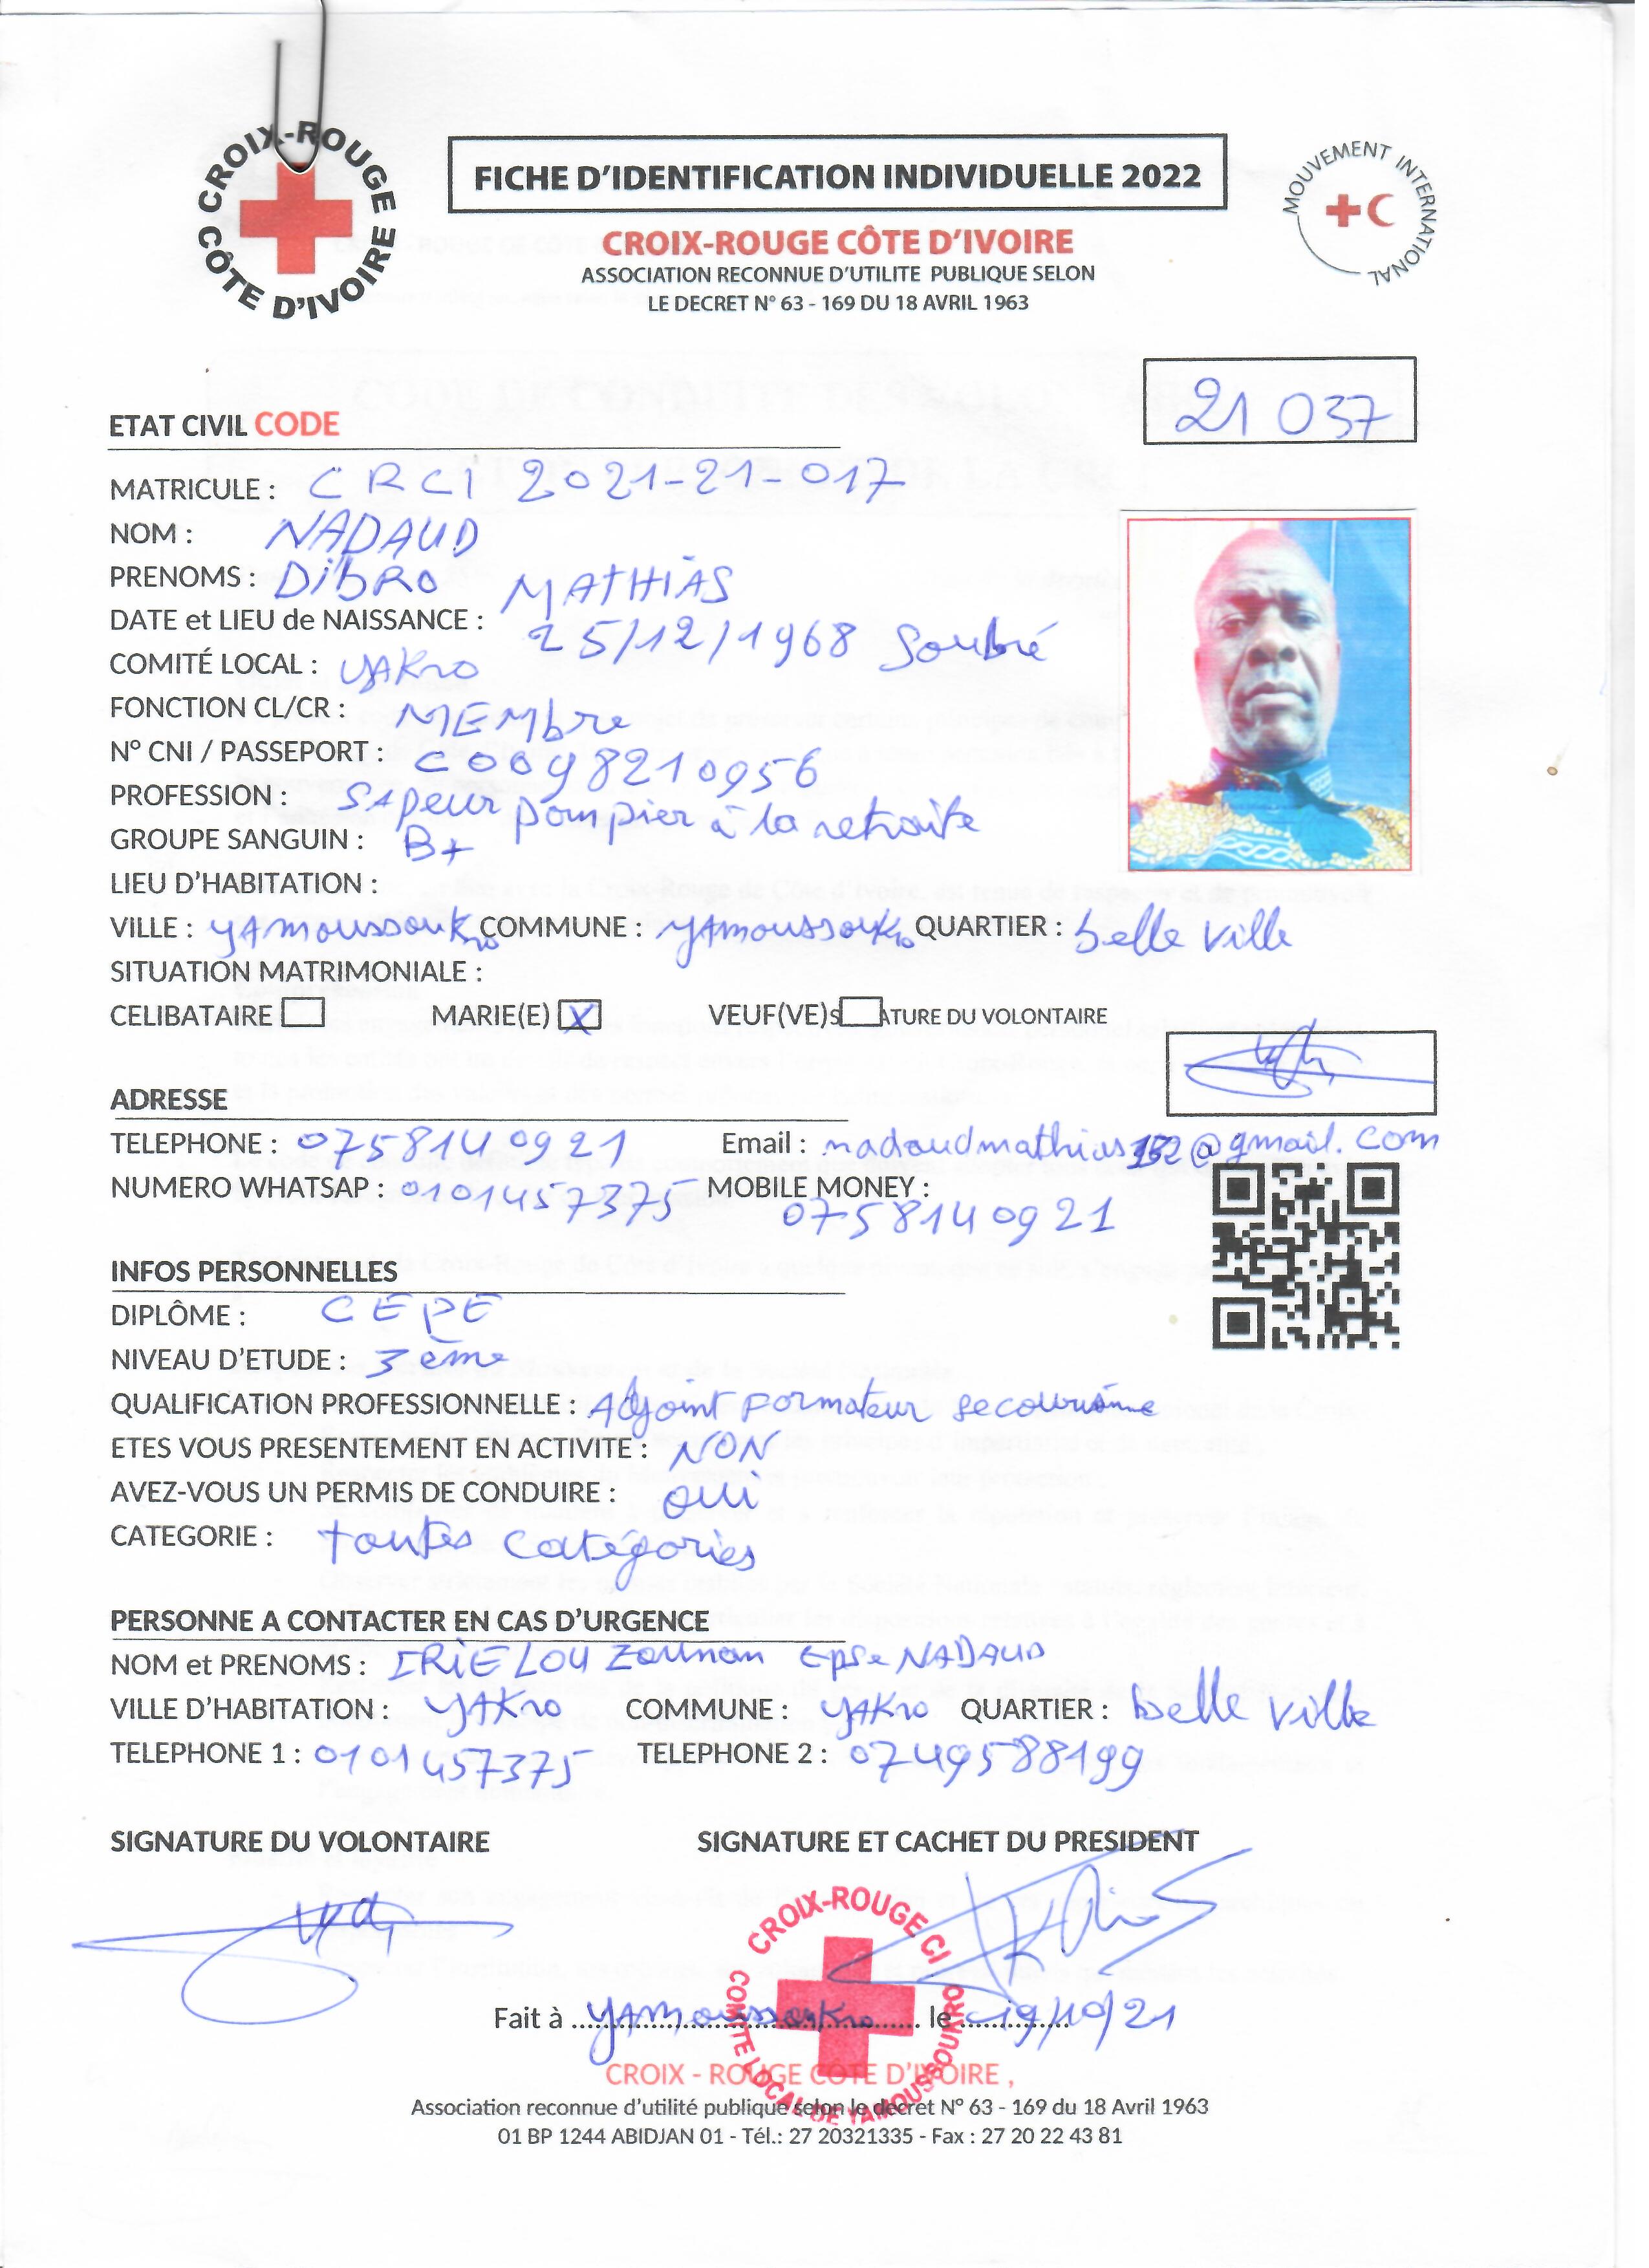 CROIX-ROUGE CÔTE D'IVOIRE
FICHE D'IDENTIFICATION INDIVIDUELLE 2022
MOUVEMENT INTERNATIONAL
CROIX-ROUGE CÔTE D'IVOIRE
ASSOCIATION RECONNUE D'UTILITE PUBLIQUE SELON
LE DECRET N° 63 - 169 DU 18 AVRIL 1963
21 037
ETAT CIVIL CODE
MATRICULE : CRCI 2021-21-017
NOM : NADAUD
PRENOMS : DibRO MATHIAS
DATE et LIEU de NAISSANCE : 25/12/1968 Soubré
COMITÉ LOCAL : YAKro
FONCTION CL/CR : MEMbre
N° CNI / PASSEPORT : C0098210956
PROFESSION : SApeur pompier à la retraite
GROUPE SANGUIN : B+
LIEU D'HABITATION :
VILLE : YAmoussoukro COMMUNE : YAmoussoukro QUARTIER : belle ville
SITUATION MATRIMONIALE :
CELIBATAIRE MARIE(E) X VEUF(VE) S ATURE DU VOLONTAIRE
ADRESSE
TELEPHONE : 0758140921 Email : nadaudmathias152@gmail.com
NUMERO WHATSAP : 0101457375 MOBILE MONEY : 0758140921
INFOS PERSONNELLES
DIPLÔME : CEPE
NIVEAU D'ETUDE : 3ème
QUALIFICATION PROFESSIONNELLE : Adjoint formateur secourisme
ETES VOUS PRESENTEMENT EN ACTIVITE : NON
AVEZ-VOUS UN PERMIS DE CONDUIRE : oui
CATEGORIE : toutes catégories
PERSONNE A CONTACTER EN CAS D'URGENCE
NOM et PRENOMS : IRIE LOU Zounan Epse NADAUD
VILLE D'HABITATION : YAKro COMMUNE : YAKro QUARTIER : belle ville
TELEPHONE 1 : 0101457375 TELEPHONE 2 : 0749588199
SIGNATURE DU VOLONTAIRE SIGNATURE ET CACHET DU PRESIDENT
CROIX-ROUGE CI
COMITE LOCAL DE YAMOUSSOUKRO
Fait à YAmoussoukro le 19/10/21
CROIX - ROUGE COTE D'IVOIRE ,
Association reconnue d'utilité publique selon le décret N° 63 - 169 du 18 Avril 1963
01 BP 1244 ABIDJAN 01 - Tél.: 27 20321335 - Fax : 27 20 22 43 81